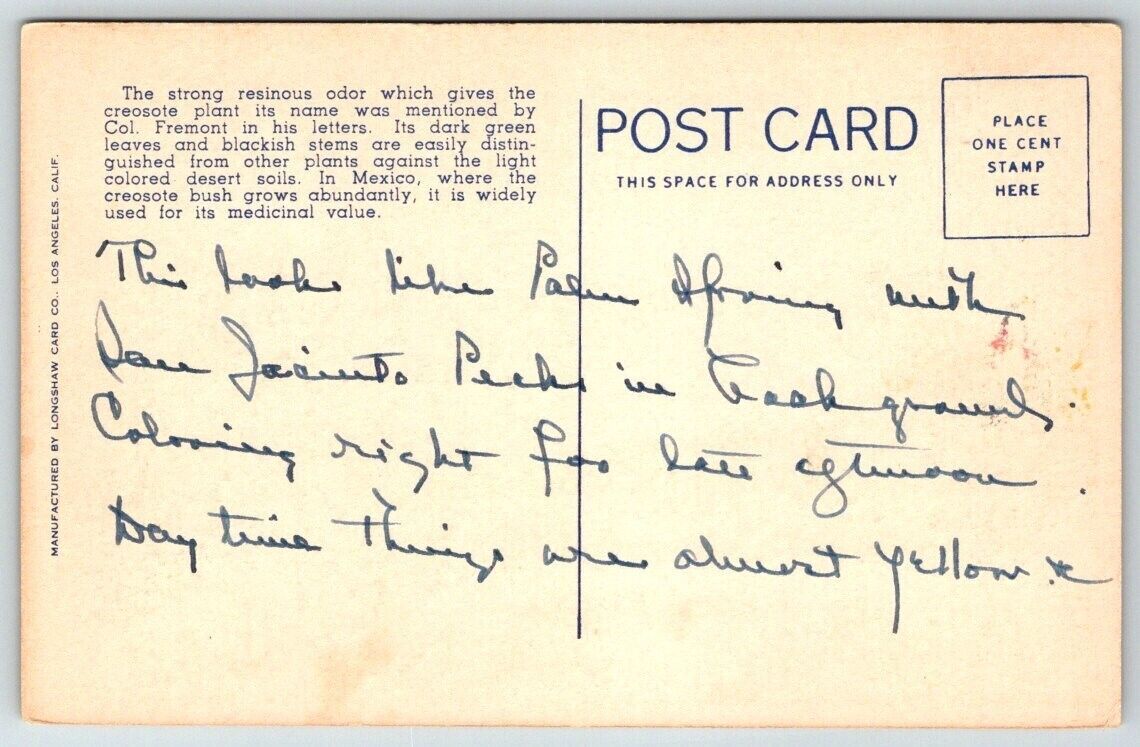 The strong resinous odor which gives the
creosote plant its name was mentioned by
Col. Fremont in his letters. Its dark green
leaves and blackish stems are easily distin-
guished from other plants against the light
colored desert soils. In Mexico, where the
creosote bush grows abundantly, it is widely
used for its medicinal value.
MANUFACTURED BY LONGSHAW CARD CO., LOS ANGELES, CALIF.
POST CARD
THIS SPACE FOR ADDRESS ONLY
PLACE
ONE CENT
STAMP
HERE
This looks like Palm Spring with
San Jacinto Peaks in back ground.
Coloring right for late afternoon.
Day time things are almost yellow.